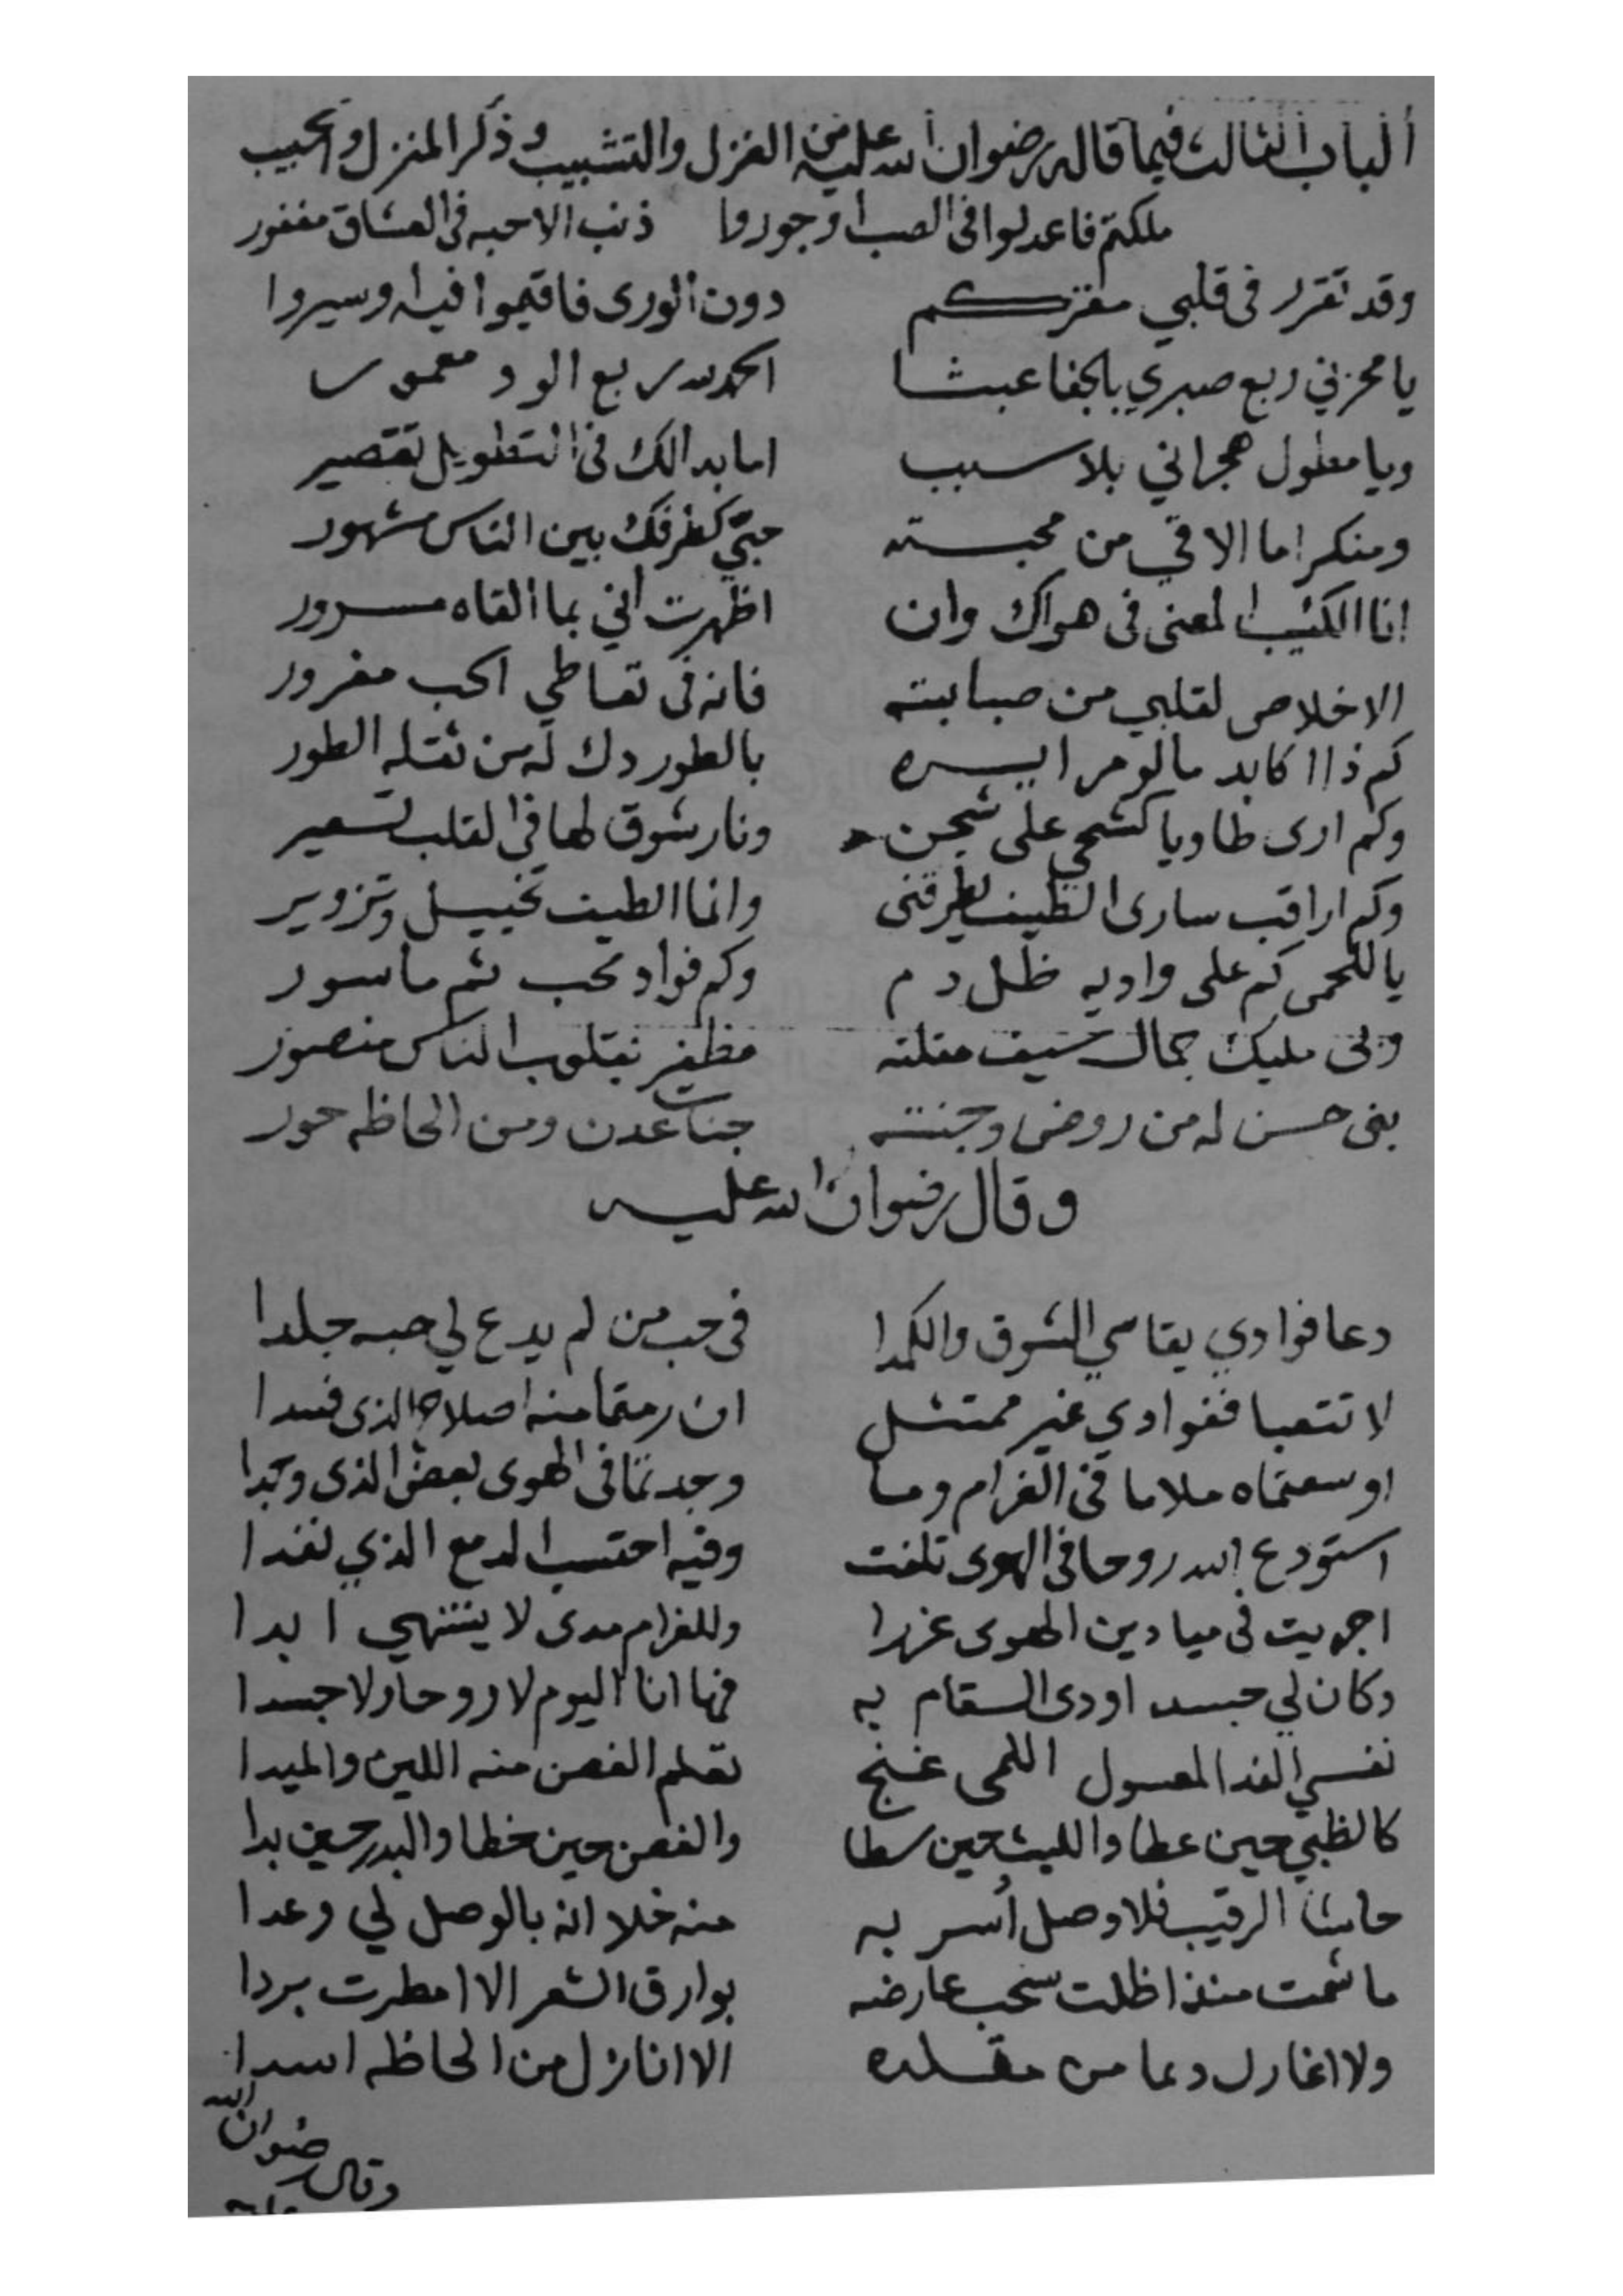 الباب الثالث فيما قاله رضوان الله عليه من الغزل والتشبيب وذكر المنزل والحبيب
ملكتم فاعدلوا في الصب او جوروا ذنب الاحبه في العشاق مغفور
وقد تقرر في قلبي مقركم دون الورى فاقيموا فيه وسيروا
يا محزني ربع صبري بالجفا عبثا الحمد لله ربع الود معمور
ويا مطول هجراني بلا سبب اما بدالك في التطويل تقصير
ومنكرا ما الاقي من محبته حبي كطرفك بين الناس مشهور
انا الكئيب المعنى في هواك وان اظهرت اني بما القاه مسرور
الاخلاص لقلبي من صبابته فانه في تعاطي الحب مغرور
كم ذا اكابد ما لو مر ايسره بالطور دك له من ثقله الطور
وكم ارى طاويا كشحي على شجن ونار شوق لها في القلب تسعير
وكم اراقب سارى الطيف يطرقني وانما الطيف تخييل وتزوير
يا للحمى كم على واديه ظل دم وكم فواد محب ثم ماسور
وبي مليك جمال سيف مقلته مظفر بقلوب الناس منصور
بني حسن له من روض وجنته جنات عدن ومن الحاظه حور
وقال رضوان الله عليه
دعا فوادي يقاسي الشوق والكمدا في حب من لم يدع لي حبه جلدا
لا تتعبا ففوادي غير ممتثل ان رمتما منه اصلاح الذى فسدا
اوسعتماه ملاما في الغرام وما وجدتما في الهوى بعض الذى وجدا
استودع الله روحا في الهوى تلفت وفيه احتسب الدمع الذي نفدا
اجريت في ميادين الهوى غررا وللغرام مدى لا ينتهي ابدا
وكان لي جسد اودى السقام به فها انا اليوم لا روحا ولا جسدا
نفسي الفدا لمعسول اللمى غنج تعلم الغصن منه اللين والميدا
كالظبي حين عطا والليث حين سطا والغصن حين خطا والبدر حين بدا
حاشا الرقيب فلا وصل أُسر به منه خلا انه بالوصل لي وعدا
ما شمت منذ اظلت سحب عارضه بوارق الشعر الا امطرت بردا
ولا اغازل دعما من مقلده الا انازل من الحاظه اسدا
وقال رضوان الله